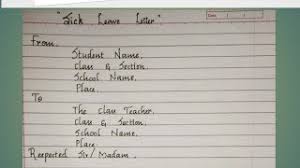 "Sick Leave Letter"
Date
From
Student Name.
Class & Section.
School Name.
Place.
To
The Clan Teacher.
Class & Section.
School Name.
Place
Respected Sir/Madam.